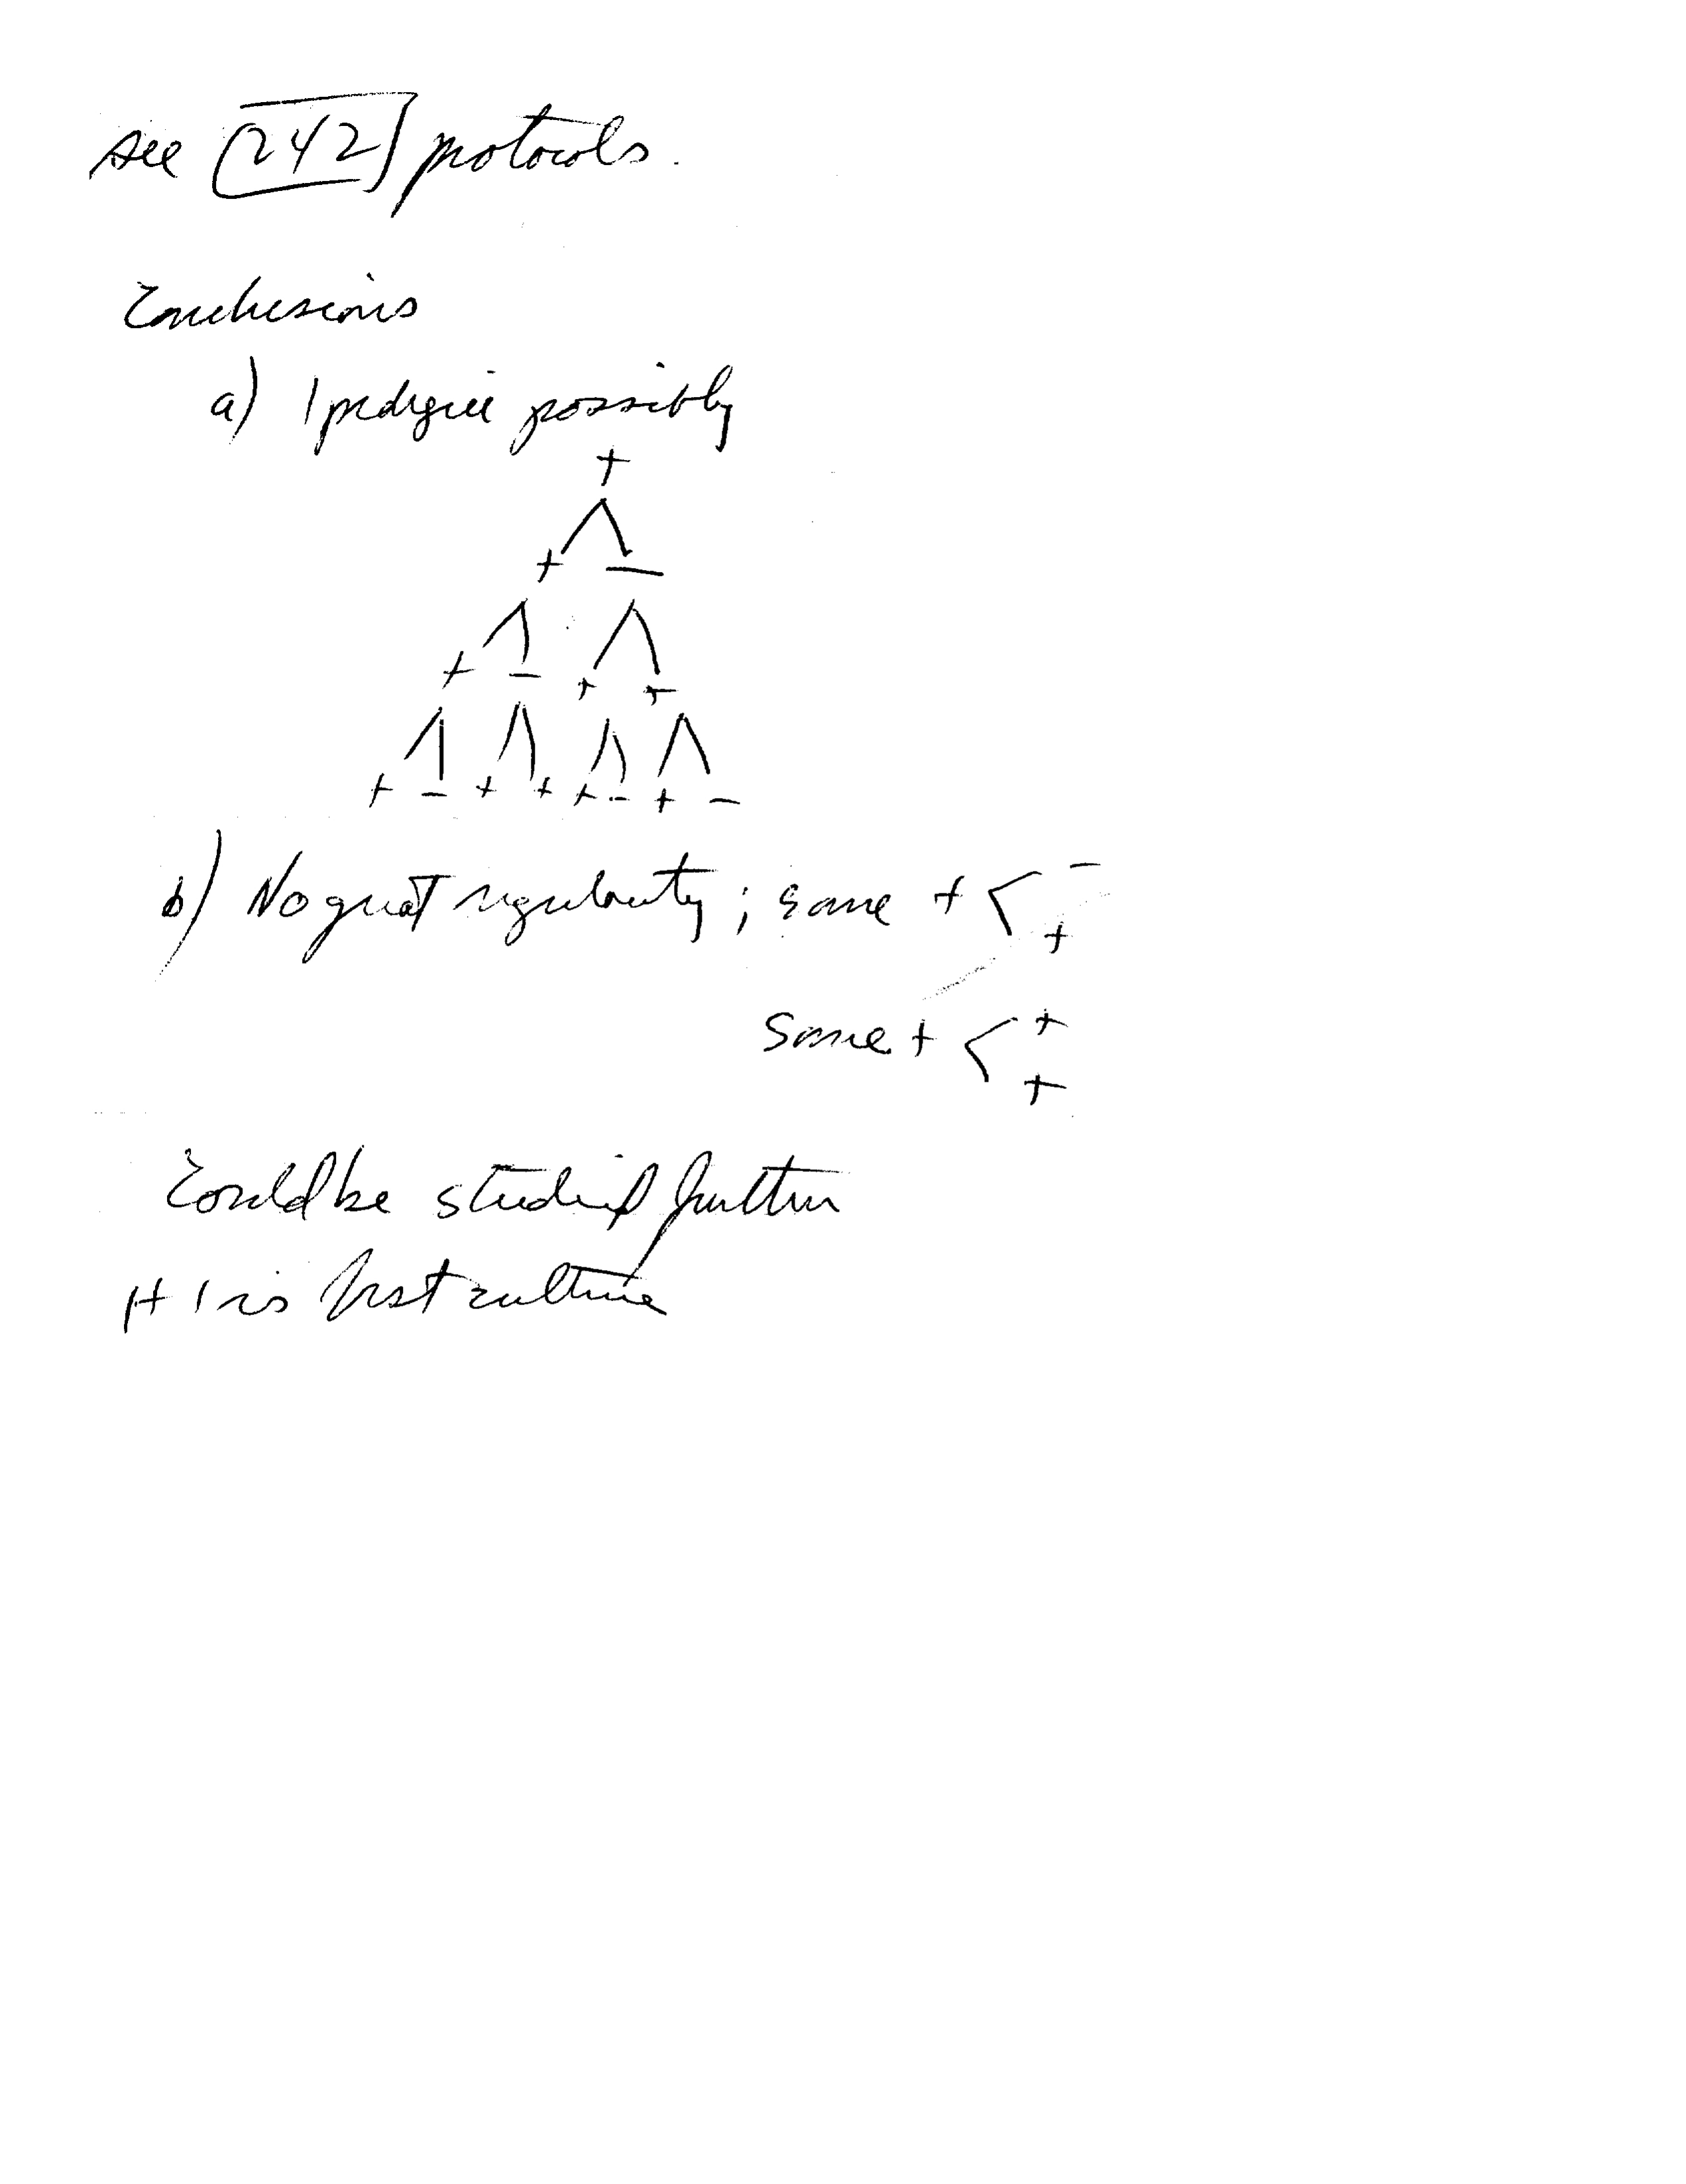 see [242] protocols.
Conclusions
a) 1 pedigree possibly
+
+ —
+ — + +
+ — + + + — + —
b) No great regularity; some + < —
+
some + < +
+
Could be studied further
H 1 is first culture